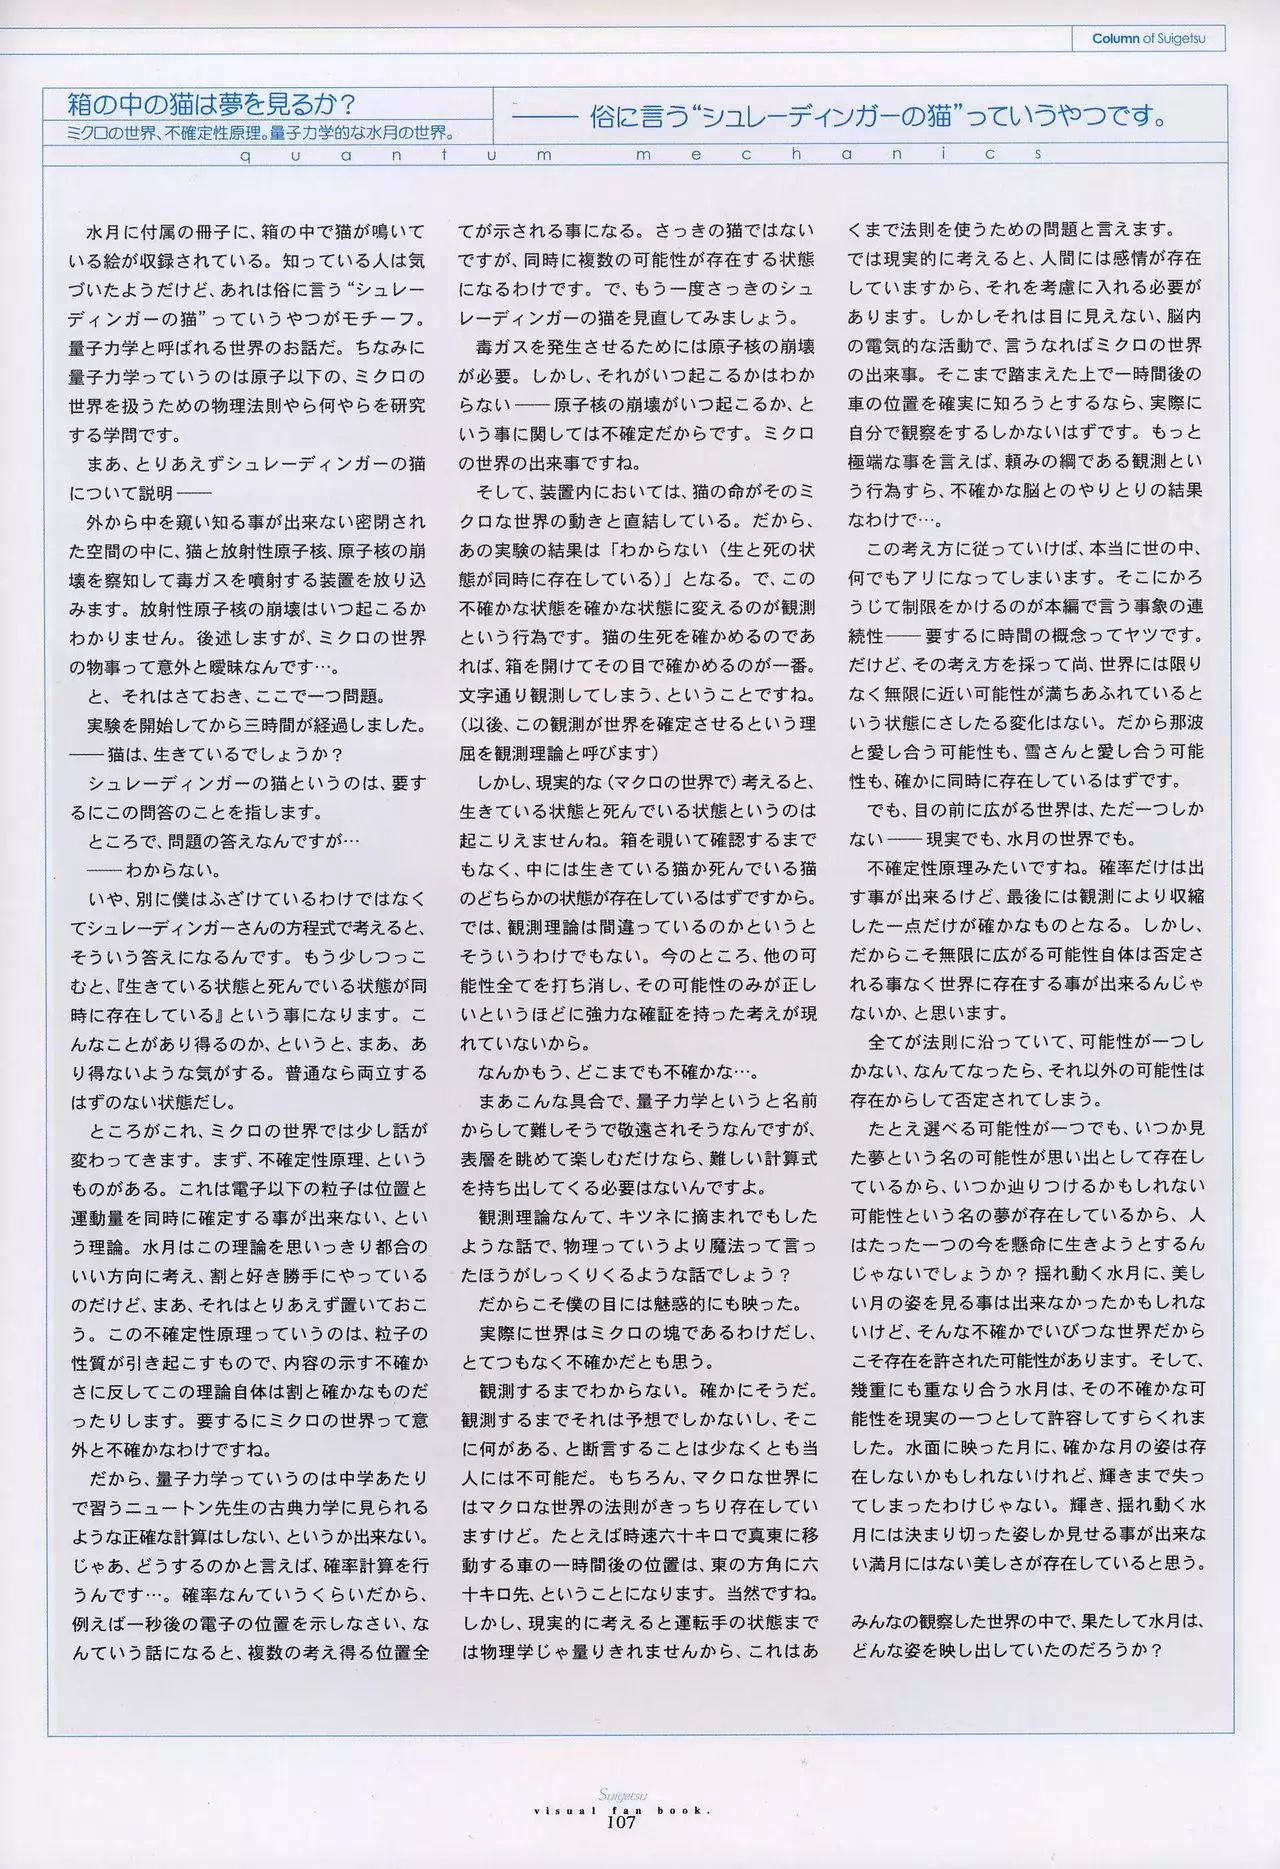 Column of Suigetsu
箱の中の猫は夢を見るか？
ミクロの世界、不確定性原理。量子力学的な水月の世界。
―― 俗に言う“シュレーディンガーの猫”っていうやつです。
quantum mechanics
水月に付属の冊子に、箱の中で猫が鳴いて
いる絵が収録されている。知っている人は気
づいたようだけど、あれは俗に言う“シュレー
ディンガーの猫”っていうやつがモチーフ。
量子力学と呼ばれる世界のお話だ。ちなみに
量子力学っていうのは原子以下の、ミクロの
世界を扱うための物理法則やら何やらを研究
する学問です。
まあ、とりあえずシュレーディンガーの猫
について説明――
外から中を窺い知る事が出来ない密閉され
た空間の中に、猫と放射性原子核、原子核の崩
壊を察知して毒ガスを噴射する装置を放り込
みます。放射性原子核の崩壊はいつ起こるか
わかりません。後述しますが、ミクロの世界
の物事って意外と曖昧なんです…。
と、それはさておき、ここで一つ問題。
実験を開始してから三時間が経過しました。
――猫は、生きているでしょうか？
シュレーディンガーの猫というのは、要す
るにこの問答のことを指します。
ところで、問題の答えなんですが…
――わからない。
いや、別に僕はふざけているわけではなく
てシュレーディンガーさんの方程式で考えると、
そういう答えになるんです。もう少しつっこ
むと、『生きている状態と死んでいる状態が同
時に存在している』という事になります。こ
んなことがあり得るのか、というと、まあ、あ
り得ないような気がする。普通なら両立する
はずのない状態だし。
ところがこれ、ミクロの世界では少し話が
変わってきます。まず、不確定性原理、という
ものがある。これは電子以下の粒子は位置と
運動量を同時に確定する事が出来ない、とい
う理論。水月はこの理論を思いっきり都合の
いい方向に考え、割と好き勝手にやっている
のだけど、まあ、それはとりあえず置いておこ
う。この不確定性原理っていうのは、粒子の
性質が引き起こすもので、内容の示す不確か
さに反してこの理論自体は割と確かなものだ
ったりします。要するにミクロの世界って意
外と不確かなわけですね。
だから、量子力学っていうのは中学あたり
で習うニュートン先生の古典力学に見られる
ような正確な計算はしない、というか出来ない。
じゃあ、どうするのかと言えば、確率計算を行
うんです…。確率なんていうくらいだから、
例えば一秒後の電子の位置を示しなさい、な
んていう話になると、複数の考え得る位置全
てが示される事になる。さっきの猫ではない
ですが、同時に複数の可能性が存在する状態
になるわけです。で、もう一度さっきのシュ
レーディンガーの猫を見直してみましょう。
毒ガスを発生させるためには原子核の崩壊
が必要。しかし、それがいつ起こるかはわか
らない――原子核の崩壊がいつ起こるか、と
いう事に関しては不確定だからです。ミクロ
の世界の出来事ですね。
そして、装置内においては、猫の命がそのミ
クロな世界の動きと直結している。だから、
あの実験の結果は「わからない（生と死の状
態が同時に存在している）」となる。で、この
不確かな状態を確かな状態に変えるのが観測
という行為です。猫の生死を確かめるのであ
れば、箱を開けてその目で確かめるのが一番。
文字通り観測してしまう、ということですね。
（以後、この観測が世界を確定させるという理
屈を観測理論と呼びます）
しかし、現実的な（マクロの世界で）考えると、
生きている状態と死んでいる状態というのは
起こりえませんね。箱を覗いて確認するまで
もなく、中には生きている猫か死んでいる猫
のどちらかの状態が存在しているはずですから。
では、観測理論は間違っているのかというと
そういうわけでもない。今のところ、他の可
能性全てを打ち消し、その可能性のみが正し
いというほどに強力な確証を持った考えが現
れていないから。
なんかもう、どこまでも不確かな…。
まあこんな具合で、量子力学というと名前
からして難しそうで敬遠されそうなんですが、
表層を眺めて楽しむだけなら、難しい計算式
を持ち出してくる必要はないんですよ。
観測理論なんて、キツネに摘まれでもした
ような話で、物理っていうより魔法って言っ
たほうがしっくりくるような話でしょう？
だからこそ僕の目には魅惑的にも映った。
実際に世界はミクロの塊であるわけだし、
とてつもなく不確かだとも思う。
観測するまでわからない。確かにそうだ。
観測するまでそれは予想でしかないし、そこ
に何がある、と断言することは少なくとも当
人には不可能だ。もちろん、マクロな世界に
はマクロな世界の法則がきっちり存在してい
ますけど。たとえば時速六十キロで真東に移
動する車の一時間後の位置は、東の方角に六
十キロ先、ということになります。当然ですね。
しかし、現実的に考えると運転手の状態まで
は物理学じゃ量りきれませんから、これはあ
くまで法則を使うための問題と言えます。
では現実的に考えると、人間には感情が存在
していますから、それを考慮に入れる必要が
あります。しかしそれは目に見えない、脳内
の電気的な活動で、言うなればミクロの世界
の出来事。そこまで踏まえた上で一時間後の
車の位置を確実に知ろうとするなら、実際に
自分で観察をするしかないはずです。もっと
極端な事を言えば、頼みの綱である観測とい
う行為すら、不確かな脳とのやりとりの結果
なわけで…。
この考え方に従っていけば、本当に世の中、
何でもアリになってしまいます。そこにかろ
うじて制限をかけるのが本編で言う事象の連
続性――要するに時間の概念ってヤツです。
だけど、その考え方を採って尚、世界には限り
なく無限に近い可能性が満ちあふれていると
いう状態にさしたる変化はない。だから那波
と愛し合う可能性も、雪さんと愛し合う可能
性も、確かに同時に存在しているはずです。
でも、目の前に広がる世界は、ただ一つしか
ない――現実でも、水月の世界でも。
不確定性原理みたいですね。確率だけは出
す事が出来るけど、最後には観測により収縮
した一点だけが確かなものとなる。しかし、
だからこそ無限に広がる可能性自体は否定さ
れる事なく世界に存在する事が出来るんじゃ
ないか、と思います。
全てが法則に沿っていて、可能性が一つし
かない、なんてなったら、それ以外の可能性は
存在からして否定されてしまう。
たとえ選べる可能性が一つでも、いつか見
た夢という名の可能性が思い出として存在し
ているから、いつか辿りつけるかもしれない
可能性という名の夢が存在しているから、人
はたった一つの今を懸命に生きようとするん
じゃないでしょうか？ 揺れ動く水月に、美し
い月の姿を見る事は出来なかったかもしれな
いけど、そんな不確かでいびつな世界だから
こそ存在を許された可能性があります。そして、
幾重にも重なり合う水月は、その不確かな可
能性を現実の一つとして許容してすらくれま
した。水面に映った月に、確かな月の姿は存
在しないかもしれないけれど、輝きまで失っ
てしまったわけじゃない。輝き、揺れ動く水
月には決まり切った姿しか見せる事が出来な
い満月にはない美しさが存在していると思う。
みんなの観察した世界の中で、果たして水月は、
どんな姿を映し出していたのだろうか？
Suigetsu
visual fan book.
107